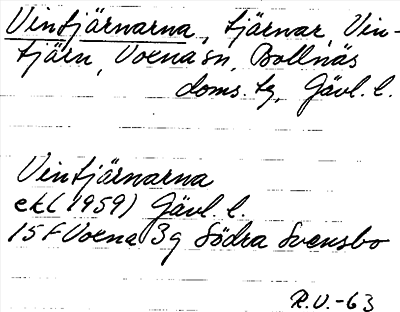 Vintjärnarna, tjärnar, Vin-
tjärn, Voxna sn, Bollnäs
doms.tg, Gävl. l.
Vintjärnarna
ekl (1959) Gävl. l.
15F Voxna 3g Södra Svensbo
R.V.-63